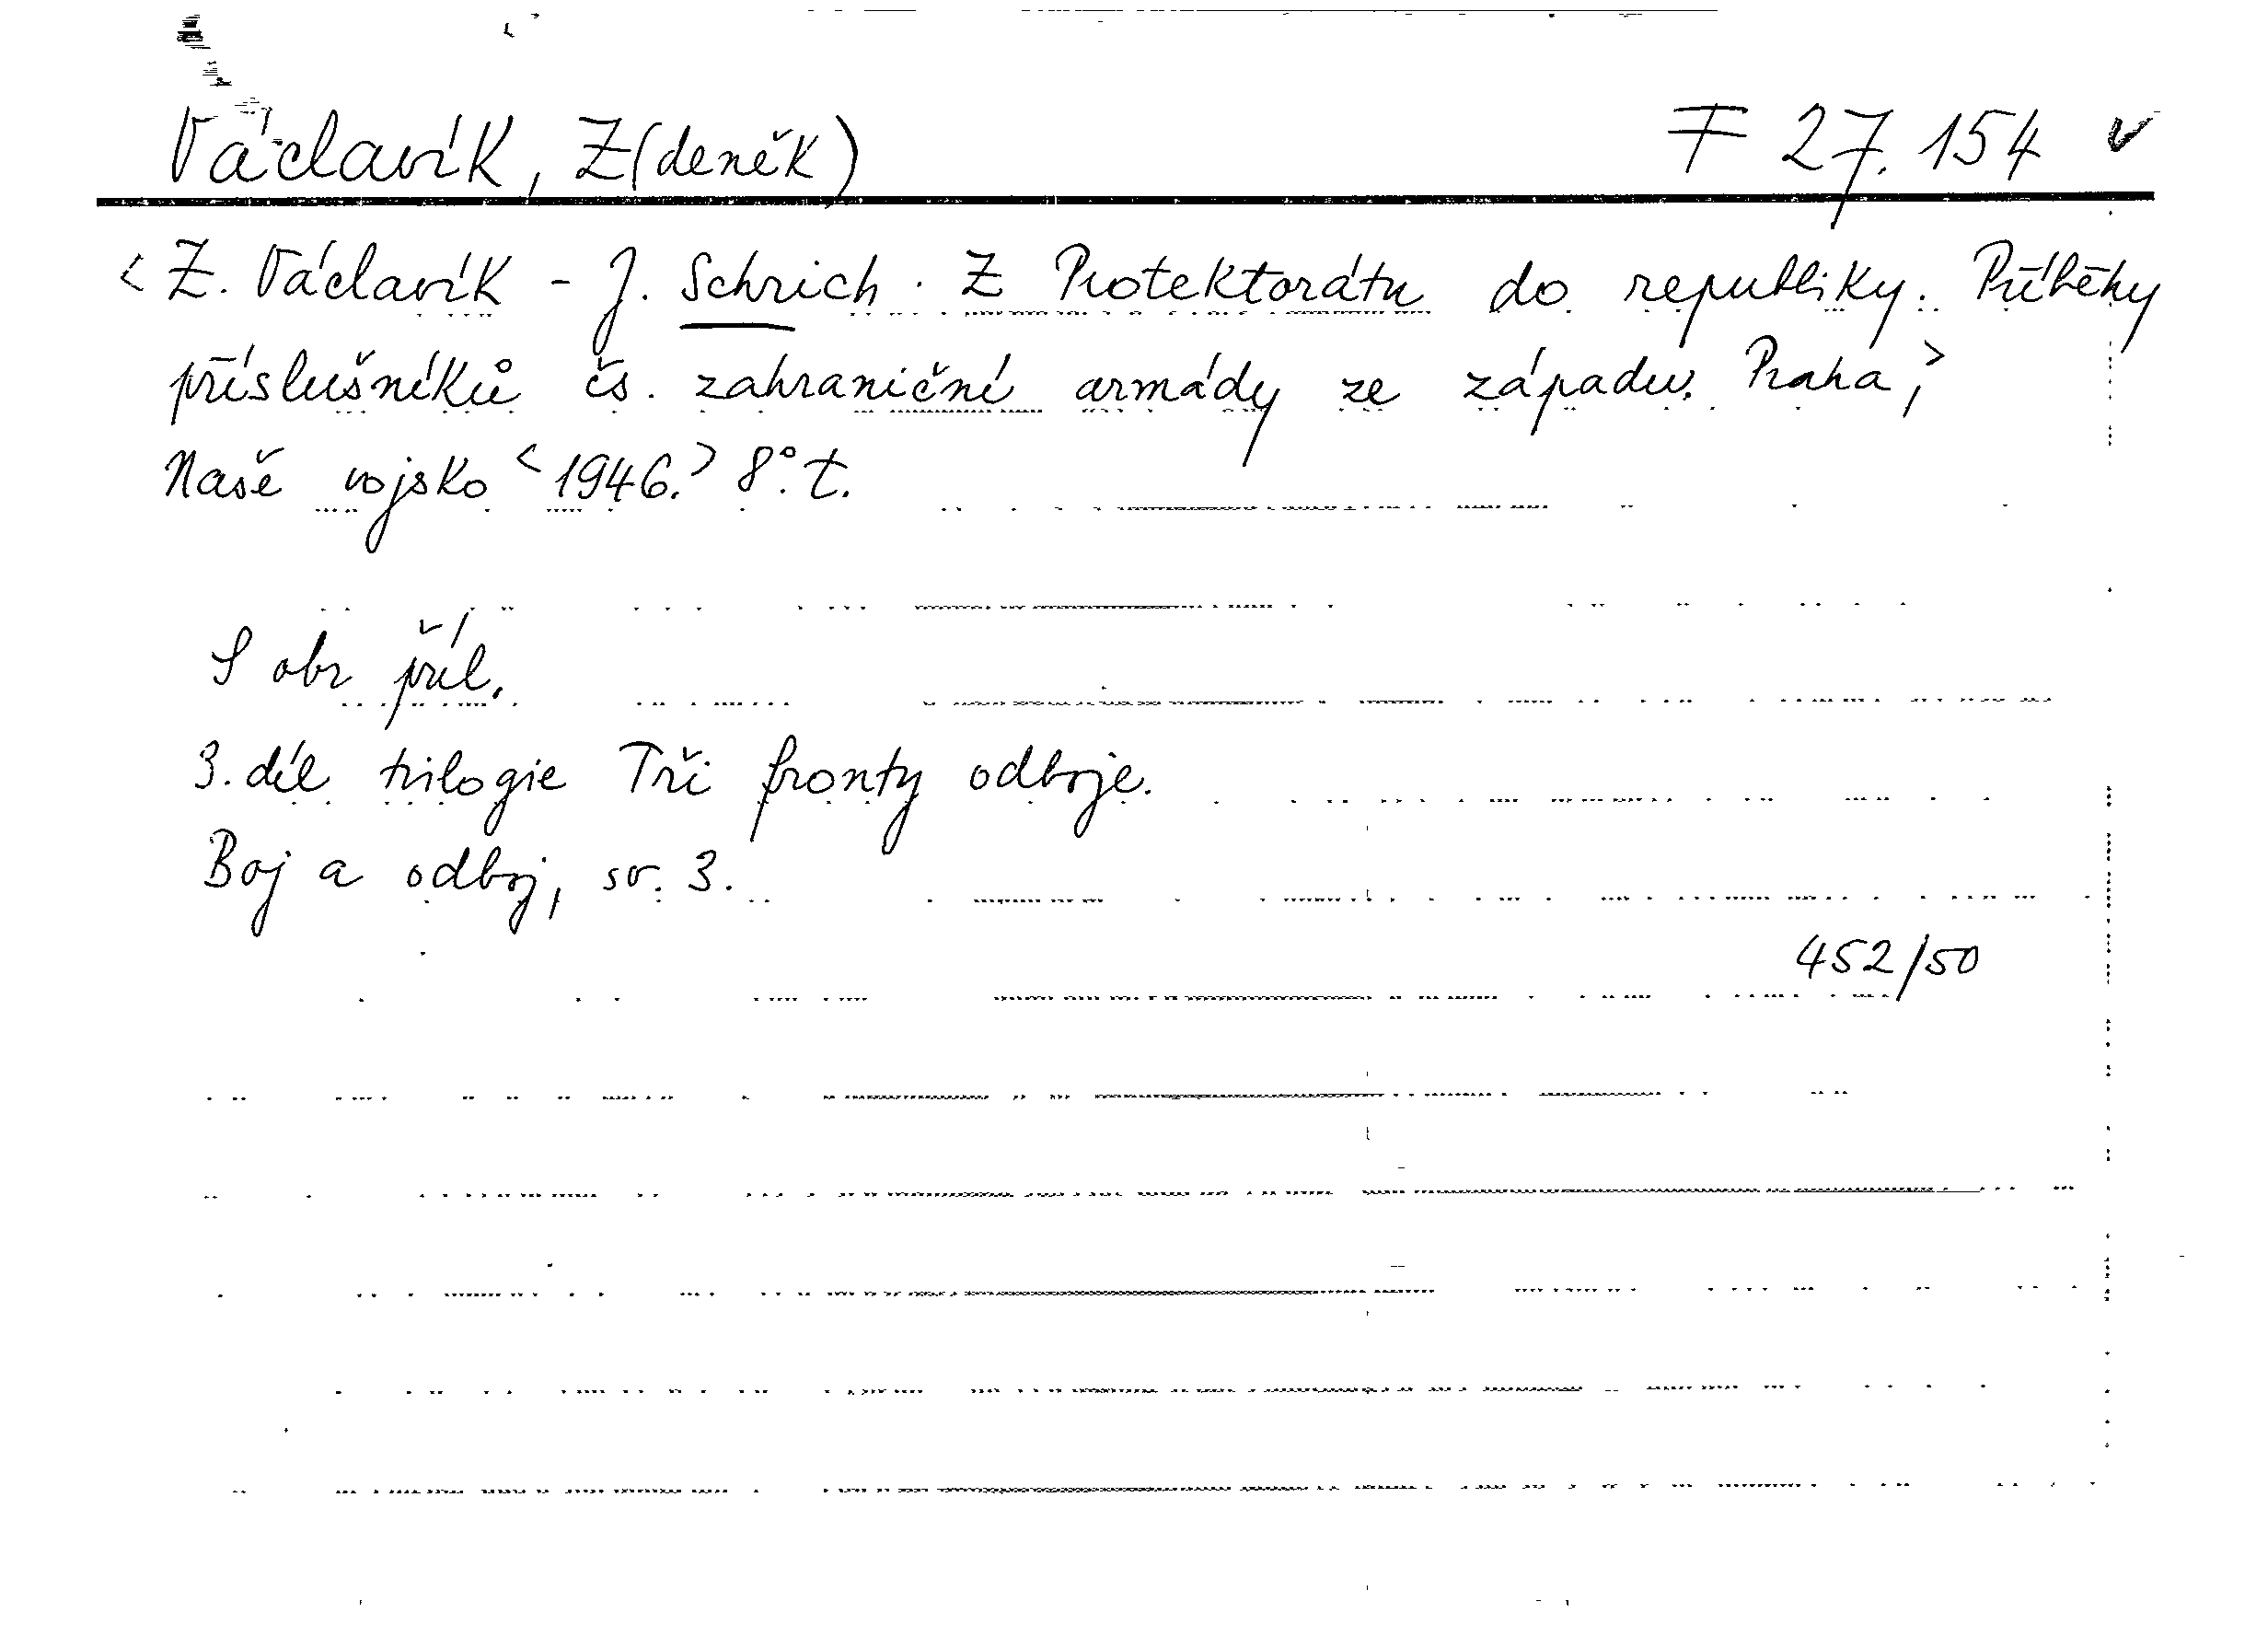 Václavík, Z(deněk) F 27.154 v
<Z. Václavík - J. Schrich. Z Protektorátu do republiky. Příběhy
příslušníků čs. zahraniční armády ze západu. Praha,>
Naše vojsko <1946.> 8°. t.
S obr příl.
3. díl trilogie Tři fronty odboje.
Boj a odboj, sv. 3.
452/50